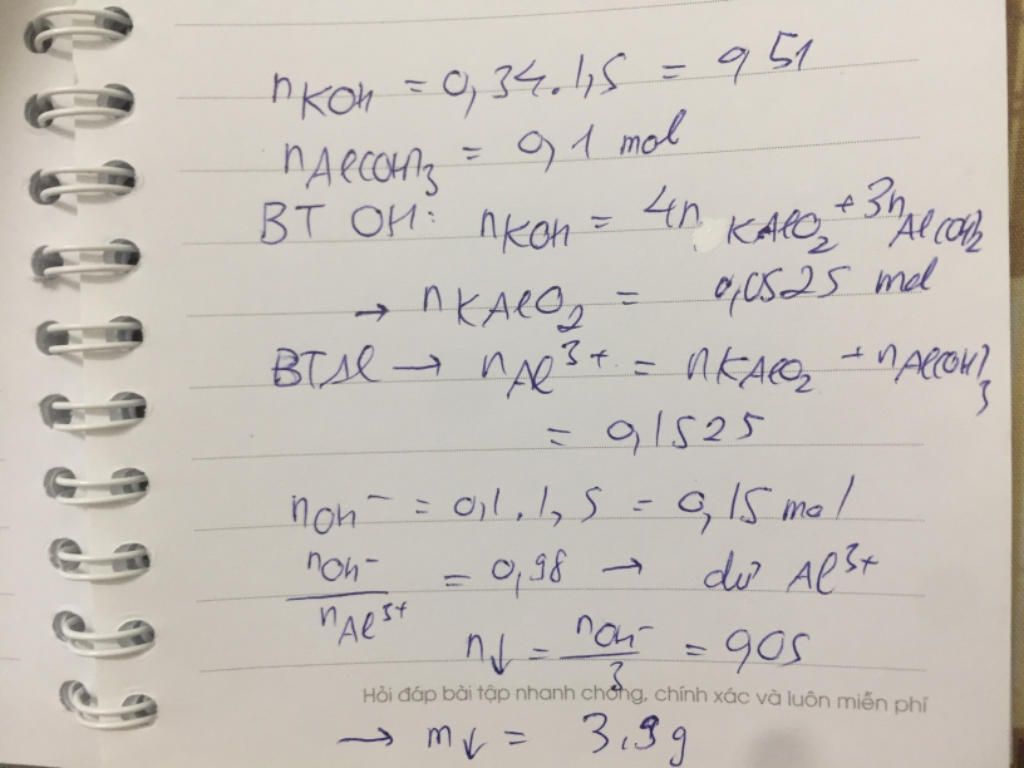 nKOH = 0,34.1,5 = 0,51
nAl(OH)3 = 0,1 mol
BT OH: nKOH = 4nKAlO2 + 3nAl(OH)3
→ nKAlO2 = 0,0525 mol
BTAl → nAl3+ = nKAlO2 + nAl(OH)3
= 0,1525
nOH- = 0,1.1,5 = 0,15 mol
nOH-/nAl3+ = 0,98 → dư Al3+
n↓ = nOH-/3 = 0,05
Hỏi đáp bài tập nhanh chóng, chính xác và luôn miễn phí
→ m↓ = 3,9g